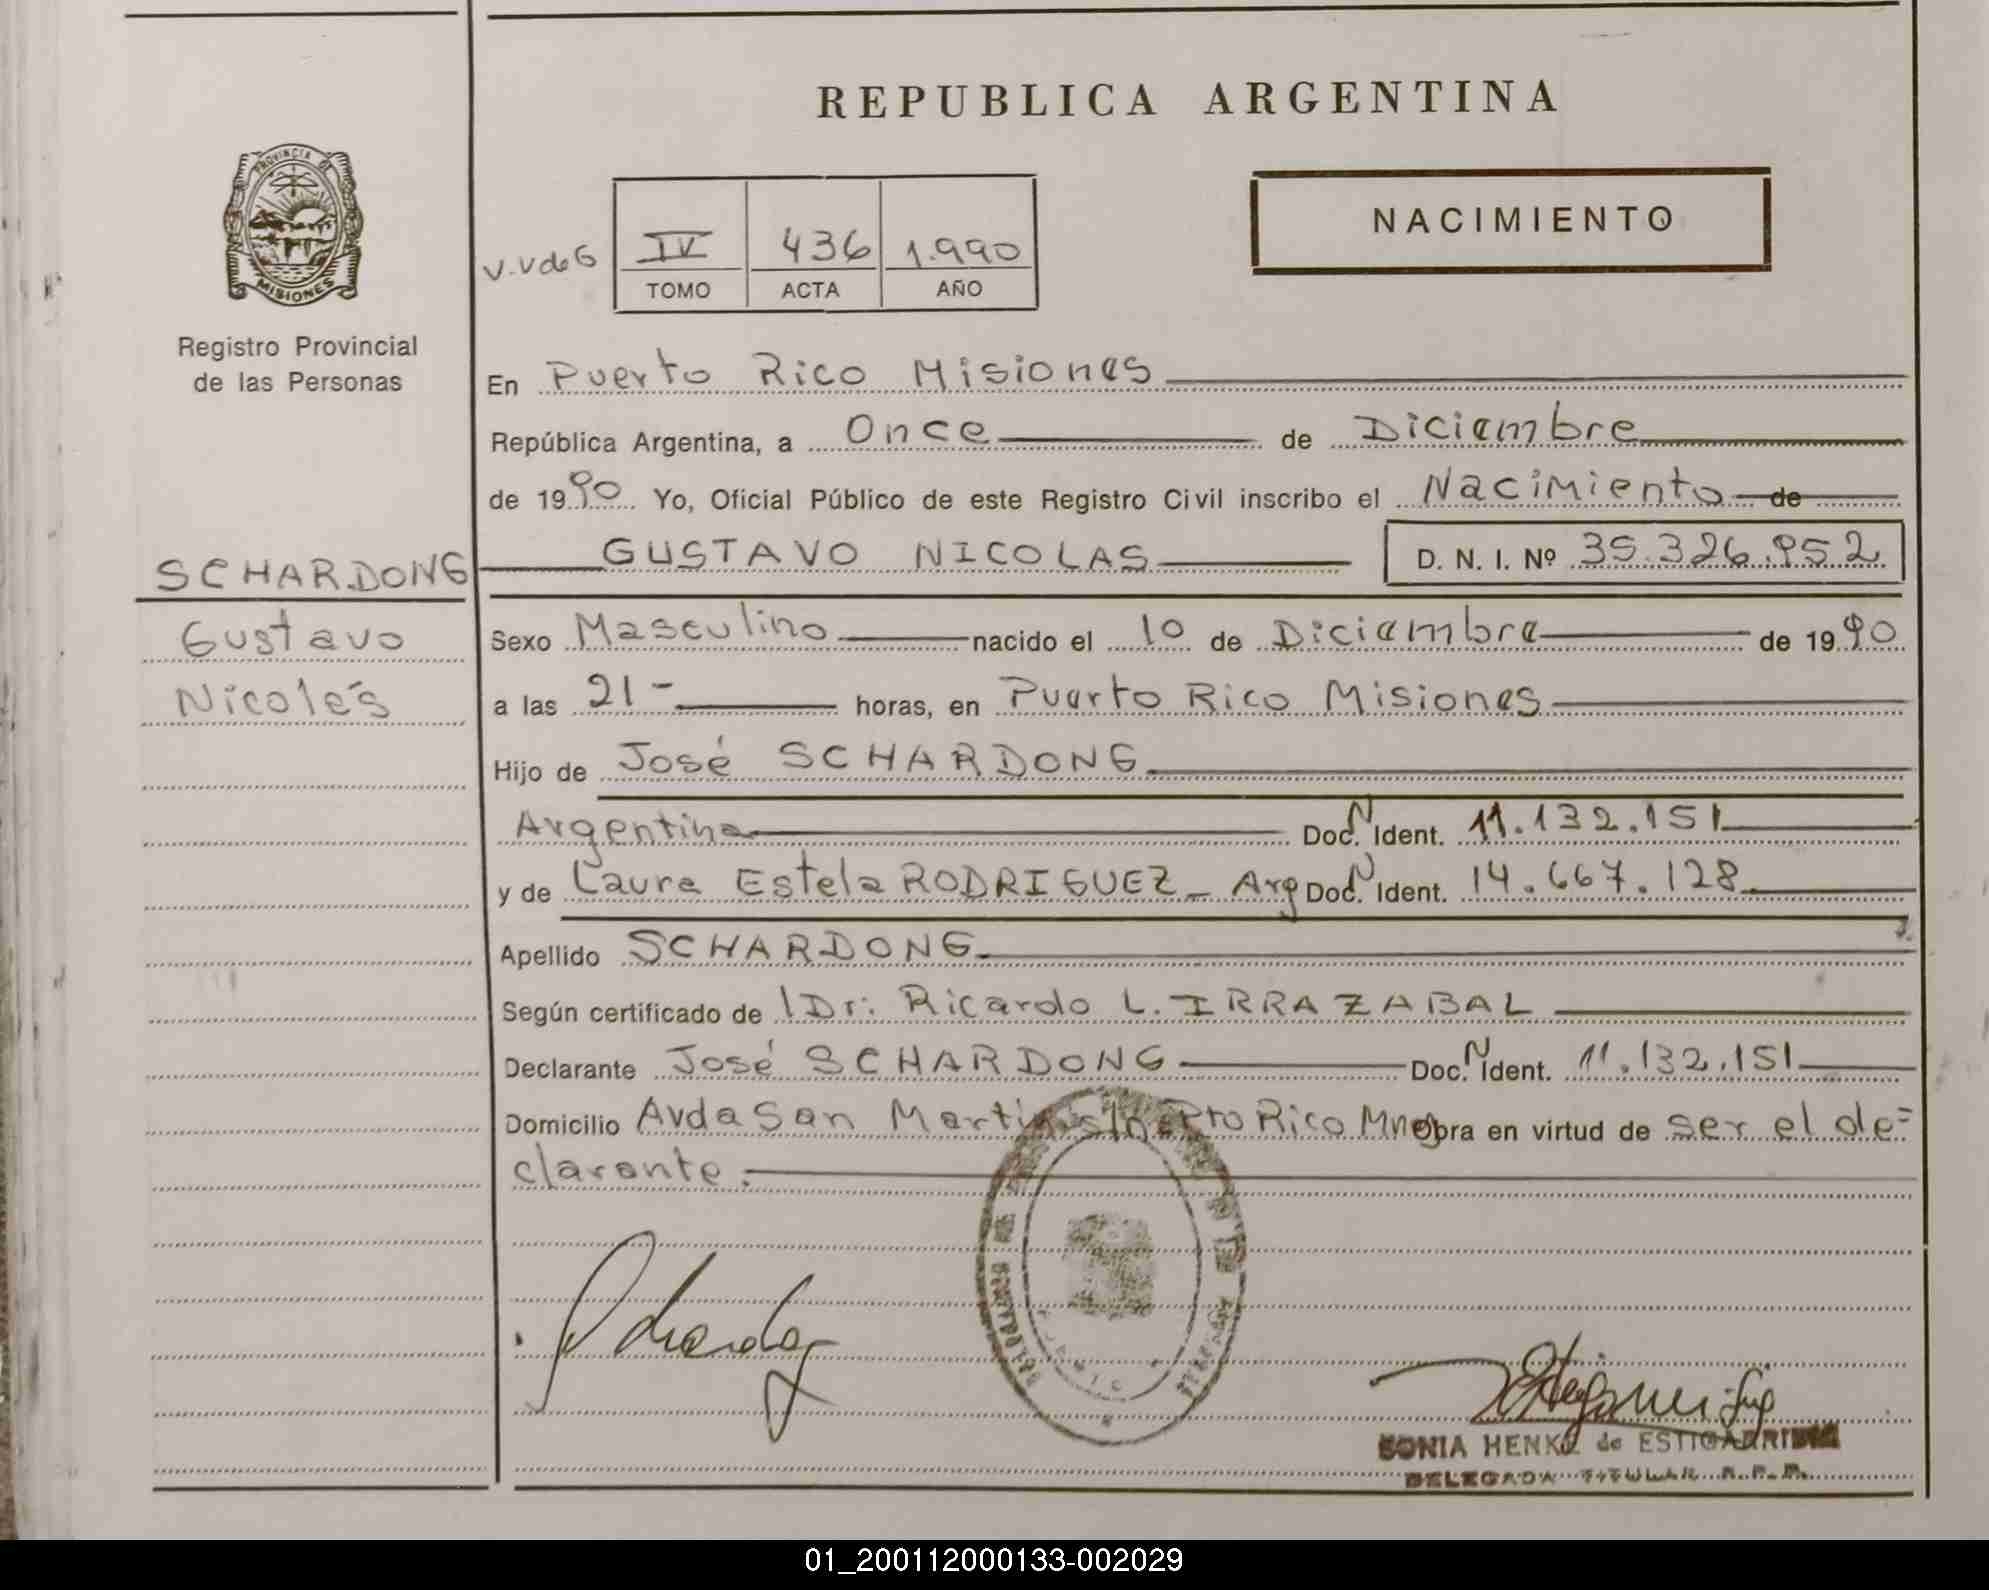 REPUBLICA ARGENTINA
PROVINCIA DE
MISIONES
Registro Provincial
de las Personas
NACIMIENTO
V.V de G
IV 436 1.990
TOMO ACTA AÑO
En Puerto Rico Misiones
República Argentina, a Once de Diciembre
de 1990 Yo, Oficial Público de este Registro Civil inscribo el Nacimiento de
SCHARDONG
Gustavo
Nicolás
GUSTAVO NICOLAS D. N. I. Nº 35.326.952
Sexo Masculino nacido el 10 de Diciembre de 1990
a las 21- horas, en Puerto Rico Misiones
Hijo de José SCHARDONG
Argentina Doc. N Ident. 11.132.151
y de Laura Estela RODRIGUEZ - Arg Doc. N Ident. 14.667.128
Apellido SCHARDONG
Según certificado de Dr: Ricardo L. IRRAZABAL
Declarante José SCHARDONG Doc. N Ident. 11.132.151
Domicilio Avda San Martin s/n Pto Rico Mnes obra en virtud de ser el de=
clarante.
SONIA HENKE de ESTIGARRIBIA
DELEGADA TITULAR R.P.P.
01_200112000133-002029